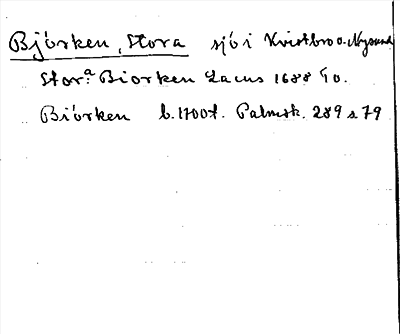 Björken, Stora sjö i Kvistbro o. Nysund
Storª Biorken Lacus 1688 Go.
Biörken b. 1700t. Palmsk. 289 s 79